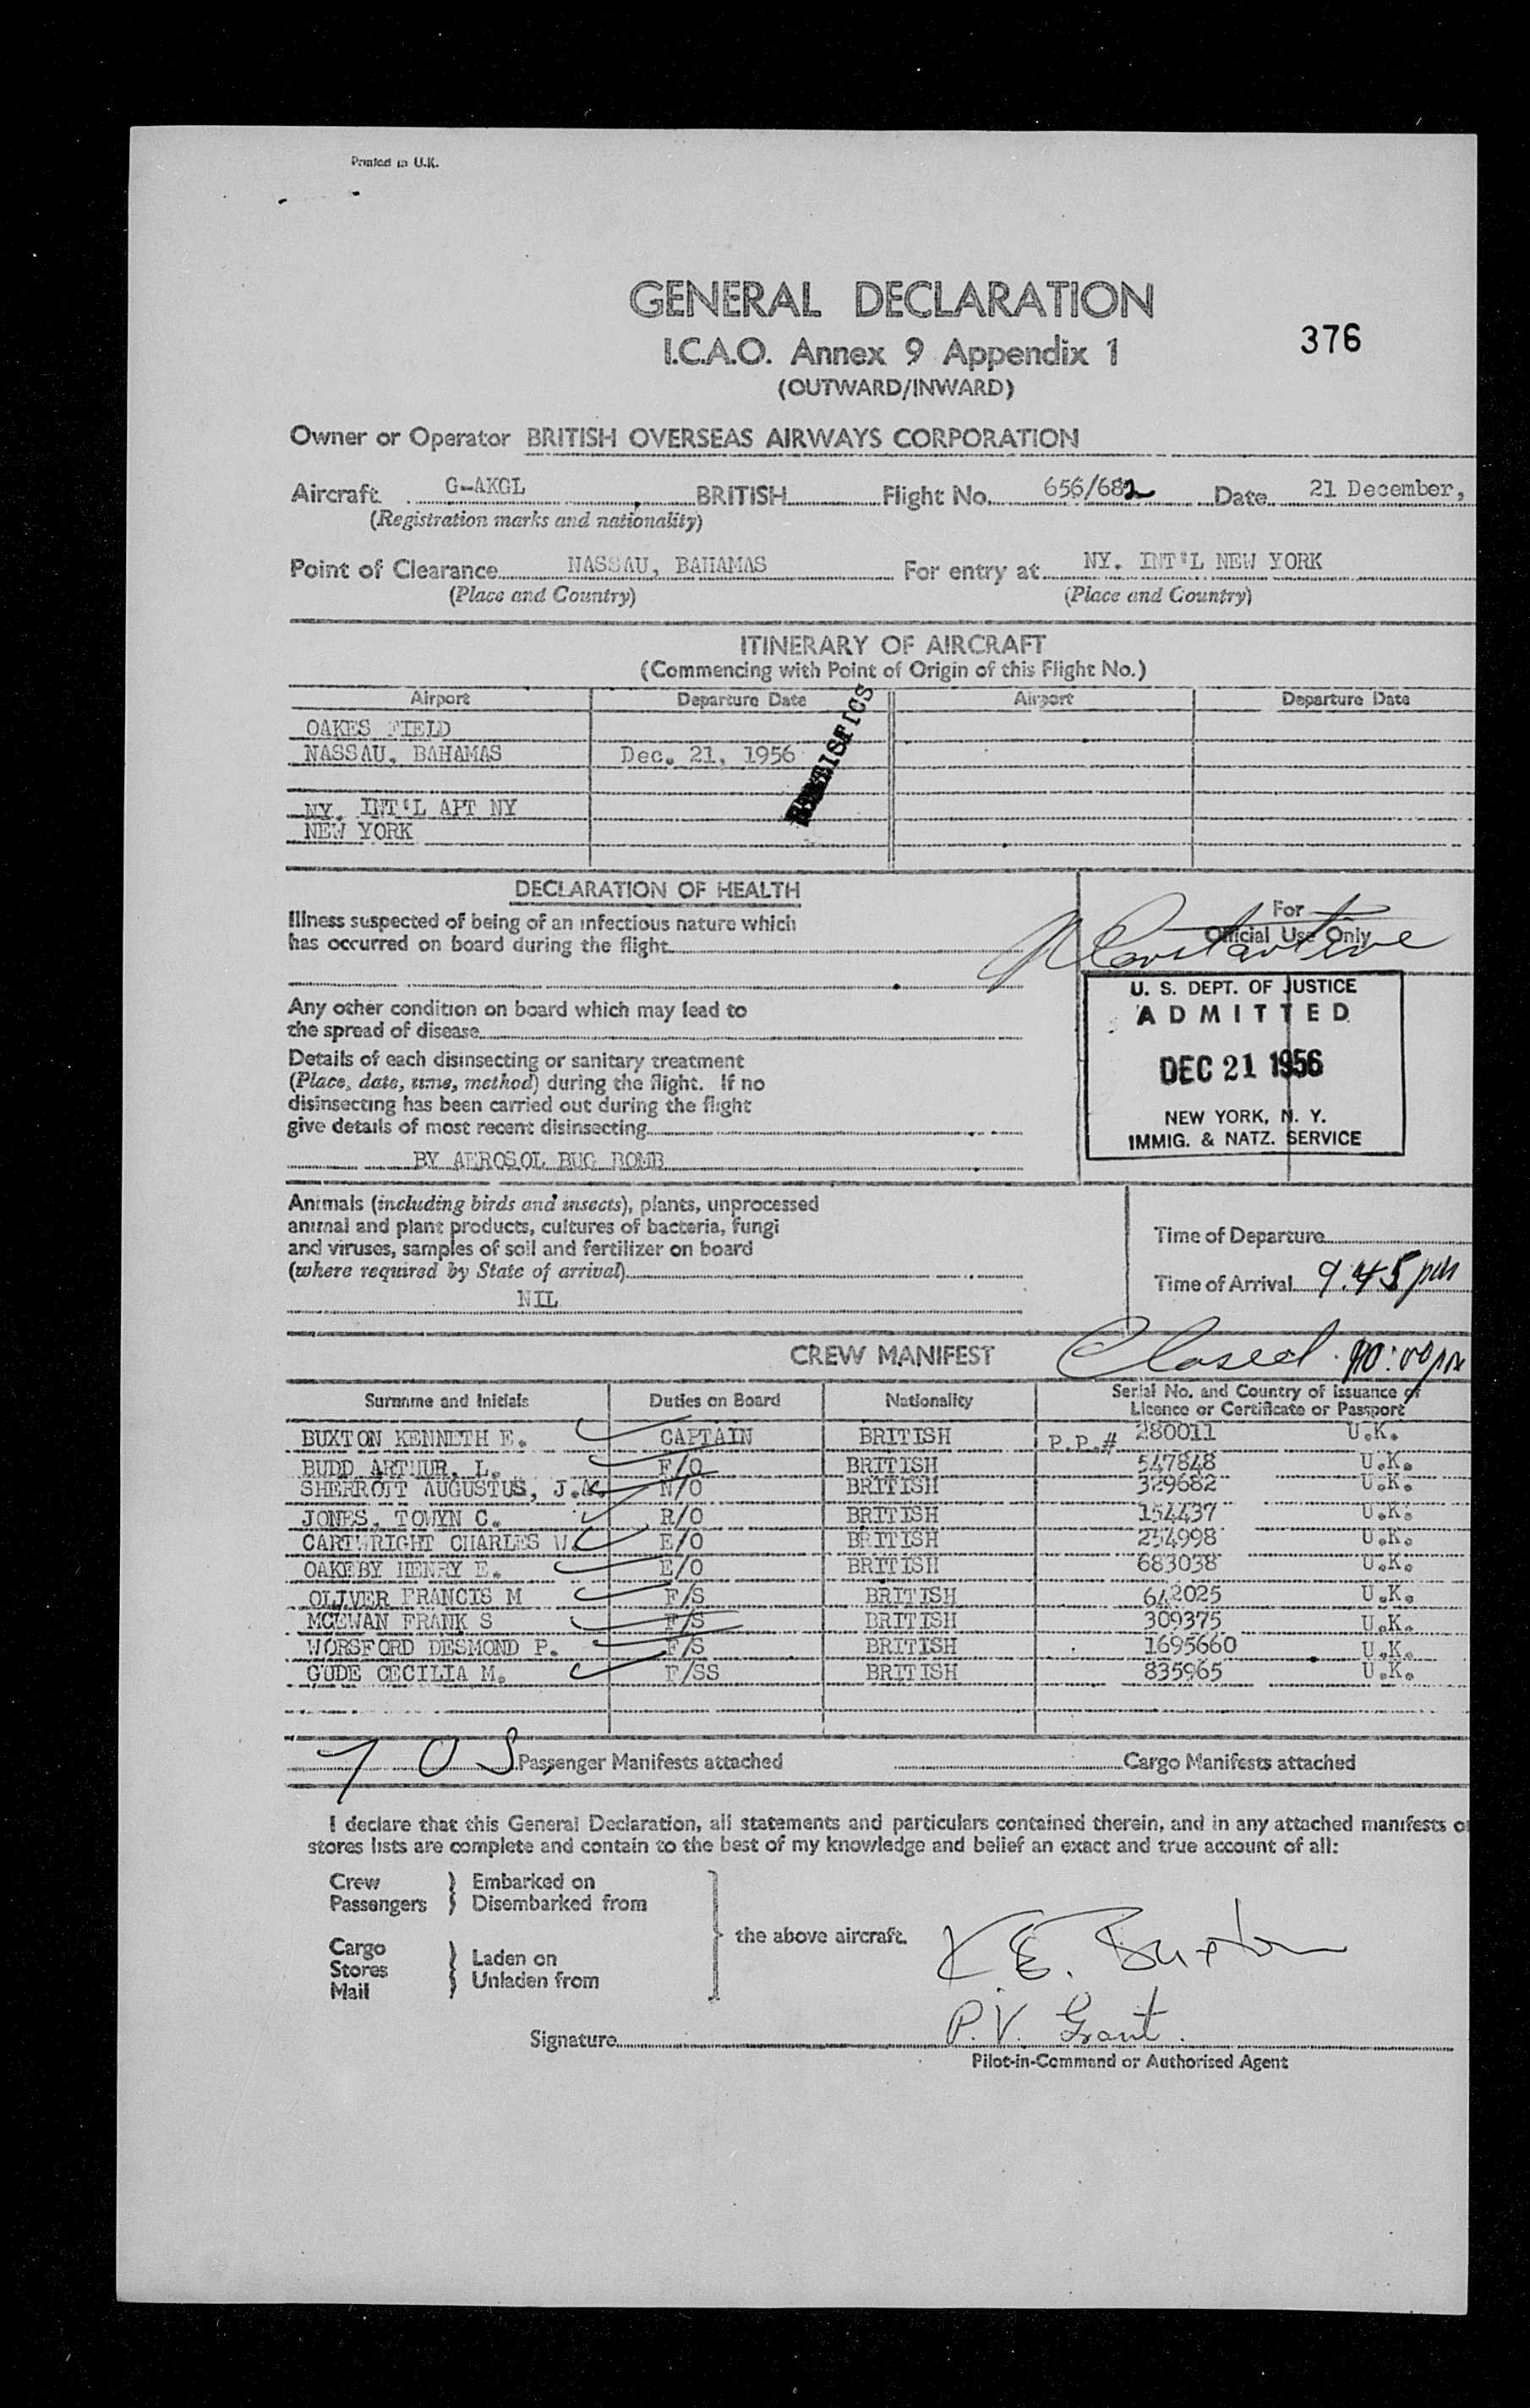 Printed in U.K.
GENERAL DECLARATION
I.C.A.O. Annex 9 Appendix 1
376
(OUTWARD/INWARD)
Owner or Operator BRITISH OVERSEAS AIRWAYS CORPORATION
Aircraft G-AKGL BRITISH Flight No. 656/682 Date 21 December,
(Registration marks and nationality)
Point of Clearance NASSAU, BAHAMAS For entry at NY. INT'L NEW YORK
(Place and Country) (Place and Country)
ITINERARY OF AIRCRAFT
(Commencing with Point of Origin of this Flight No.)
Airport Departure Date Airport Departure Date
OAKES FIELD
NASSAU, BAHAMAS Dec. 21, 1956
NY. INT'L APT NY
NEW YORK
DECLARATION OF HEALTH
For
Official Use Only
Illness suspected of being of an infectious nature which
has occurred on board during the flight
Any other condition on board which may lead to
the spread of disease
Details of each disinsecting or sanitary treatment
(Place, date, time, method) during the flight. If no
disinsecting has been carried out during the flight
give details of most recent disinsecting
BY AEROSOL BUG BOMB
U. S. DEPT. OF JUSTICE
ADMITTED
DEC 21 1956
NEW YORK, N. Y.
IMMIG. & NATZ. SERVICE
Animals (including birds and insects), plants, unprocessed
animal and plant products, cultures of bacteria, fungi
and viruses, samples of soil and fertilizer on board
(where required by State of arrival)
NIL
Time of Departure
Time of Arrival 9.45 pm
Closed 10:00 pm
CREW MANIFEST
Surname and Initials Duties on Board Nationality Serial No. and Country of issuance of
Licence or Certificate or Passport
BUXTON KENNETH E. CAPTAIN BRITISH P.P.# 280011 U.K.
BUDD ARTHUR, L. F/O BRITISH 547848 U.K.
SHERROTT AUGUSTUS, J. N/O BRITISH 329682 U.K.
JONES, TOWYN C. R/O BRITISH 154437 U.K.
CARTWRIGHT CHARLES W. E/O BRITISH 254998 U.K.
OAKEBY HENRY E. E/O BRITISH 683038 U.K.
OLIVER FRANCIS M F/S BRITISH 642025 U.K.
MCEWAN FRANK S F/S BRITISH 309375 U.K.
WORSFORD DESMOND P. F/S BRITISH 1695660 U.K.
GUDE CECILIA M. F/SS BRITISH 835965 U.K.
Passenger Manifests attached Cargo Manifests attached
I declare that this General Declaration, all statements and particulars contained therein, and in any attached manifests or
stores lists are complete and contain to the best of my knowledge and belief an exact and true account of all:
Crew Embarked on
Passengers Disembarked from
the above aircraft.
Cargo
Stores
Mail
Laden on
Unladen from
K. E. Buxton
P. V. Grant.
Signature
Pilot-in-Command or Authorised Agent